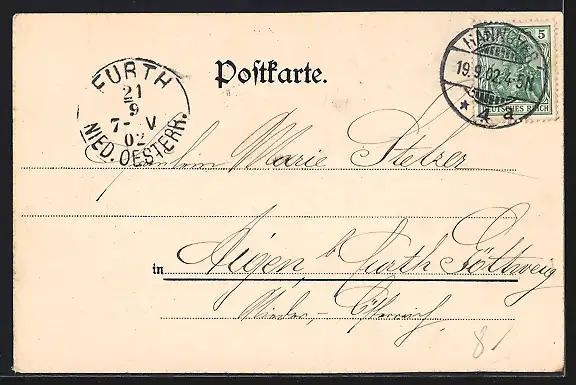 FURTH
21/9
7-V
02
NIED. OESTERR.
Postkarte.
HANNOVER
19.9.02.4-5N.
* 4 a.
5
DEUTSCHES REICH
Fräulein Marie Stelzer
in Aigen, b. Furth Göttweig
Nieder-Österreich,
81